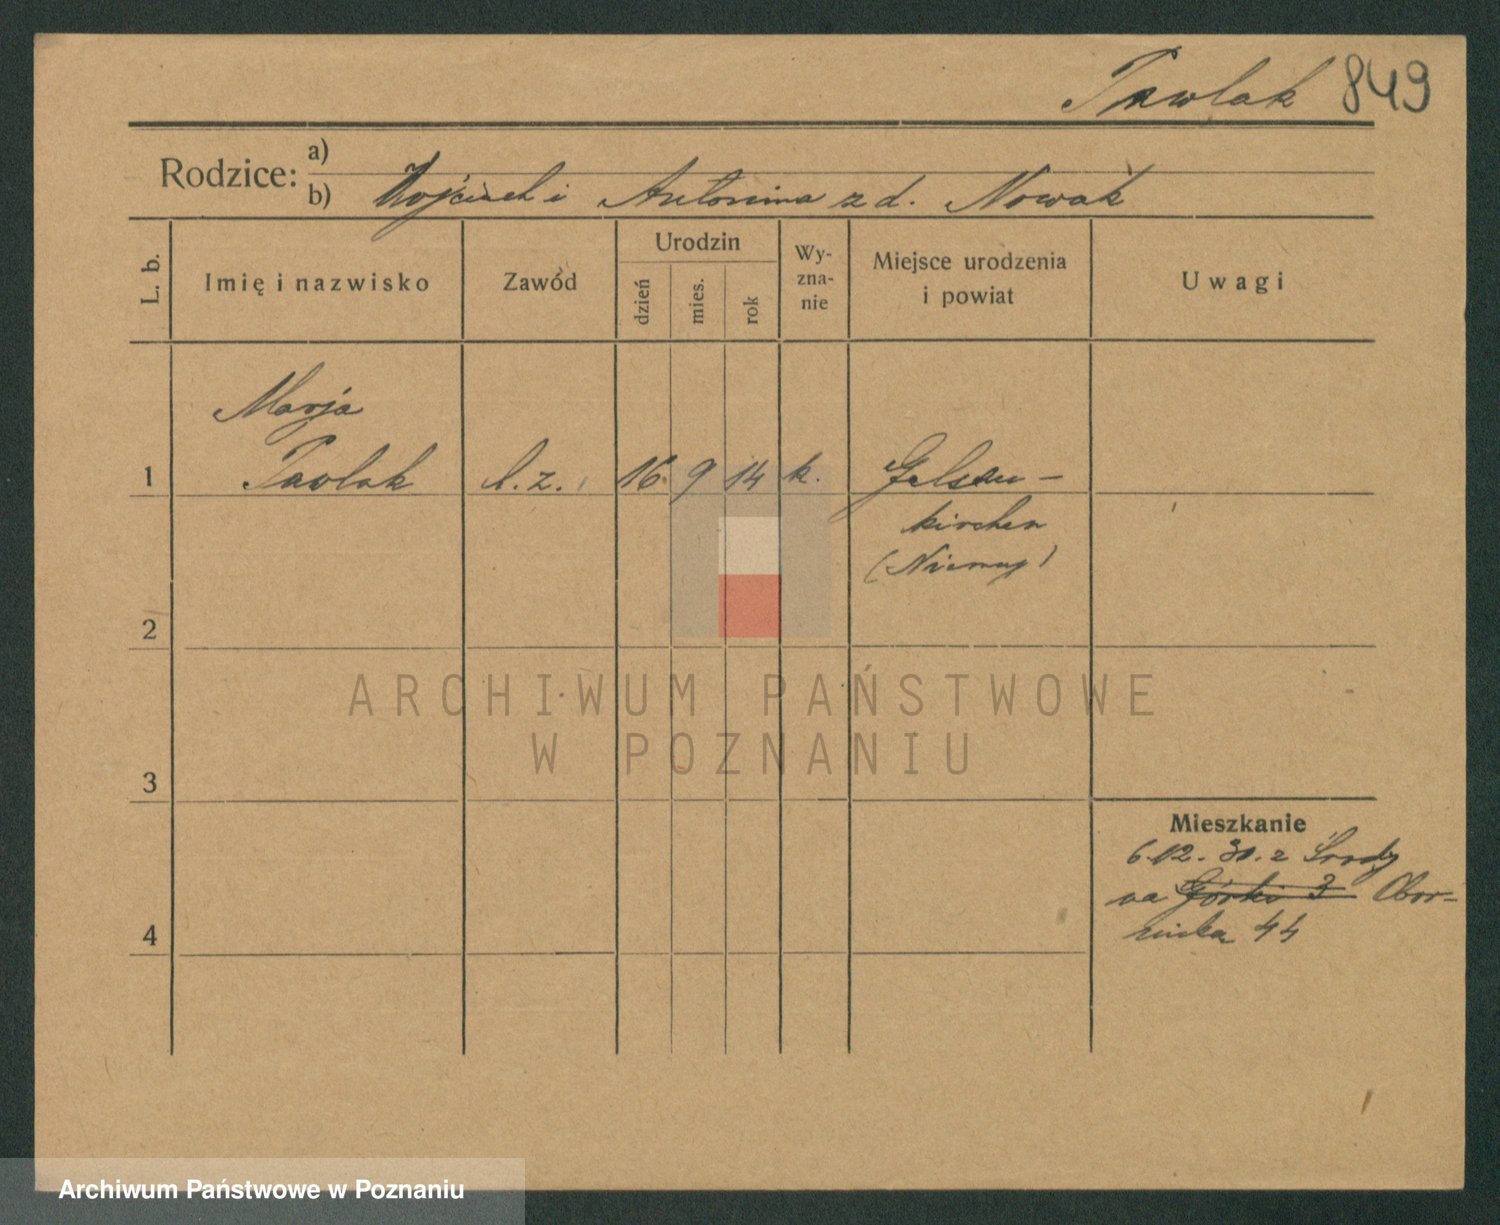 Pawlak 849
Rodzice: a)
b) Wojciech i Antonina z d. Nowak
L. b.
Imię i nazwisko
Zawód
Urodzin
dzień
mies.
rok
Wy-
zna-
nie
Miejsce urodzenia
i powiat
Uwagi
Marja
1 Pawlak b. z. 16 9 14 k. Gelsen-
kirchen
(Niemcy)
2
ARCHIWUM PAŃSTWOWE
W POZNANIU
3
Mieszkanie
6.12. 30. z Środy
na Górki 3 Obor-
nicka 44
4
Archiwum Państwowe w Poznaniu